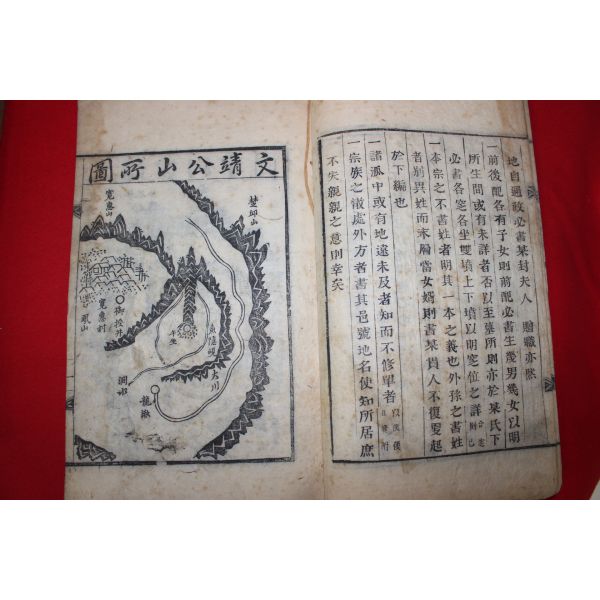 地自通政必書某封夫人 贈職亦然
一前後配各有子女則前配必書生幾男幾女以明
所生間或有未詳者否以至墓所則亦於某氏下
必書各窆各坐雙墳上下墳以明窆位之詳
一本宗之不書姓者明其一本之義也外孫之書姓
者別異姓而本屬當女婿則書某貫人不復疊起
於下編也
一諸派中或有地遠未及者知而不修單者
一宗族之散處外方者書其邑號地名使知所居庶
不失親親之意則幸矣
文靖公山所圖
寬惠山
御授井
寬惠村
鳳山
洞水
龍湫
魚隱峴
大川